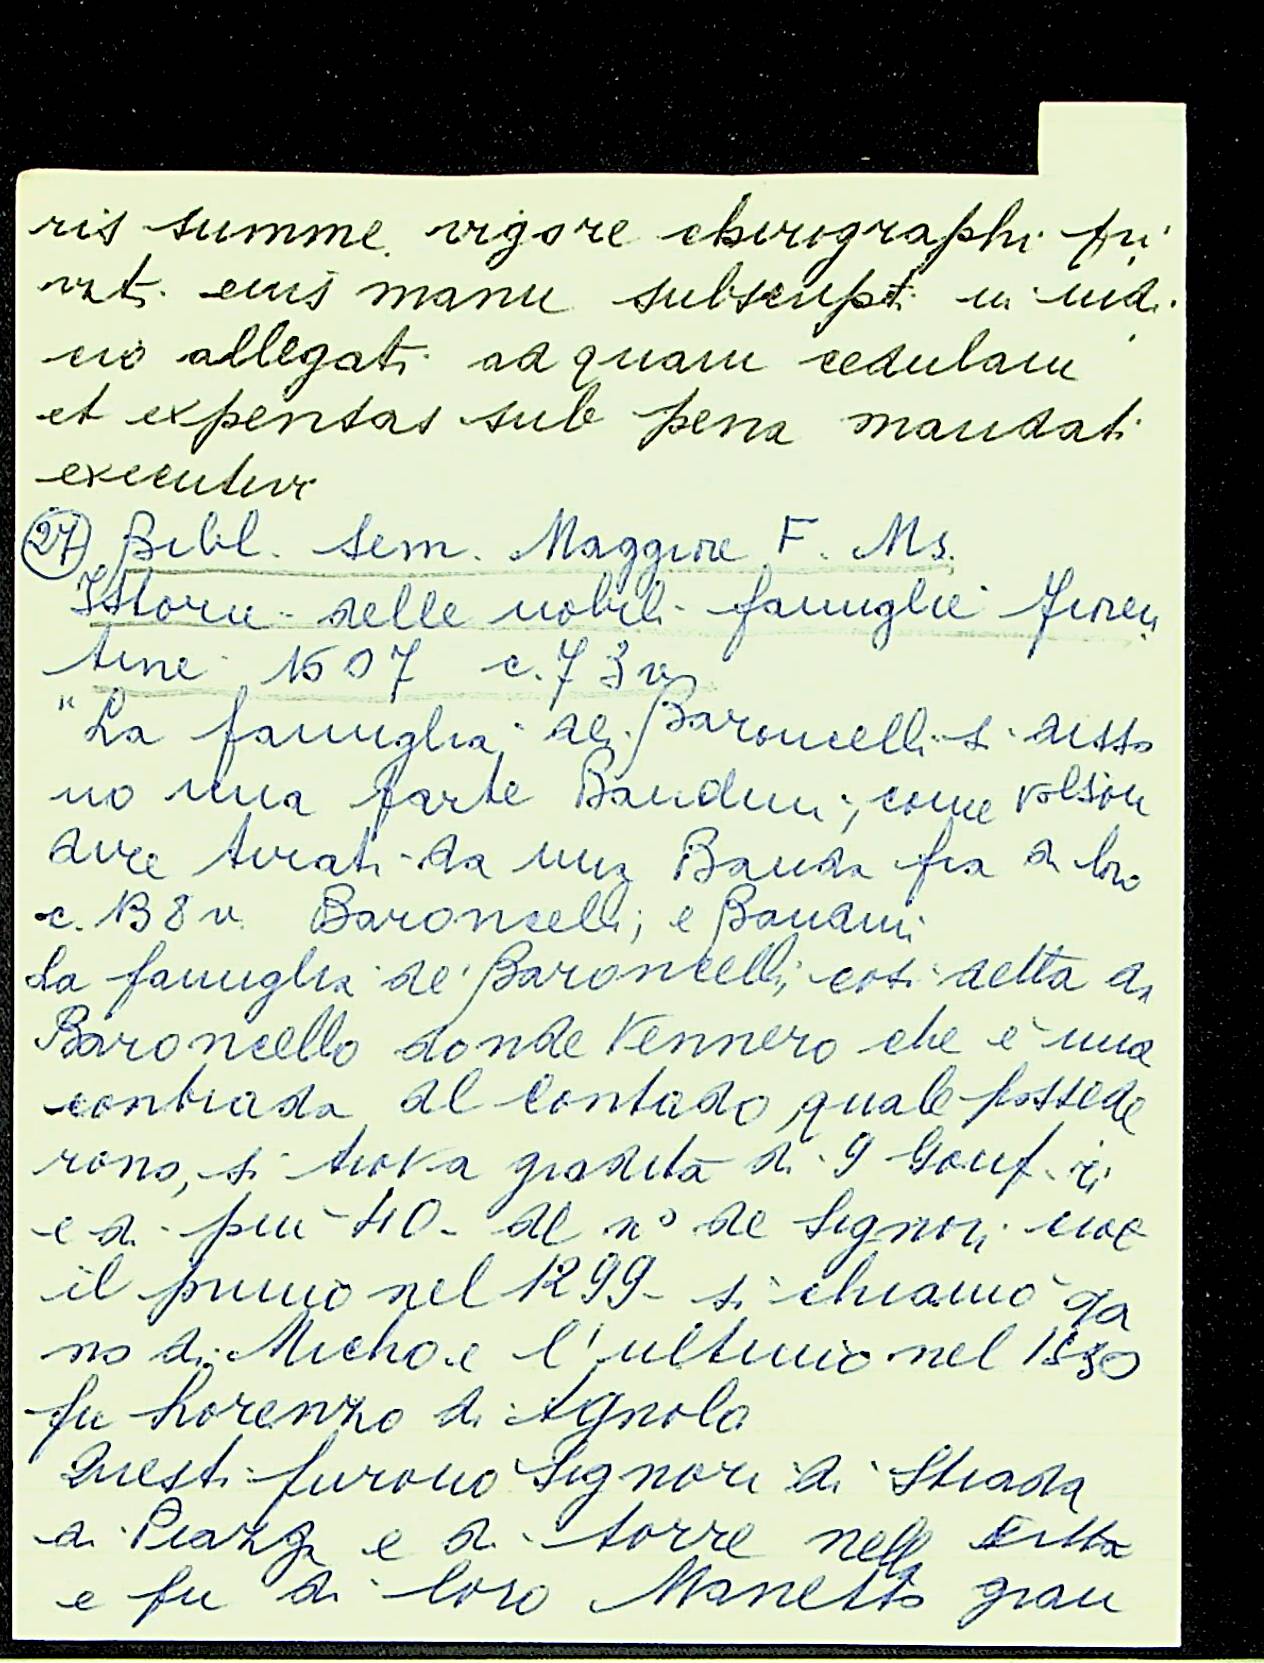 ris summe vigore chirographi pri
vati eius manu subscripti in iudi
cio allegati ad quam cedulam
et expensas sub pena mandati
executivi
(27) Bibl. Sem. Maggiore F. Ms.
Istorie delle nobili famiglie fioren
tine 1607 c. 73 v
"La famiglia de Baroncelli si disso
no una parte Bandini, come volson
dire tirati da una Banda fra di loro
c. 138 v. Baroncelli; e Bandini
La famiglia de' Baroncelli, cosi detta da
Baroncello donde Vennero che è una
contrada del Contado, quale possede
rono, si trova gradita di 9 Gonf. ri
e di piu 40 del n° de Signori cioe
il primo nel 1299 si chiamò Ga
no di Micho e l'ultimo nel 1530
fu Lorenzo di Agnolo
Questi furono Signori di Strada
di Piazza e di torre nella Citta
e fu di loro Manetto gran